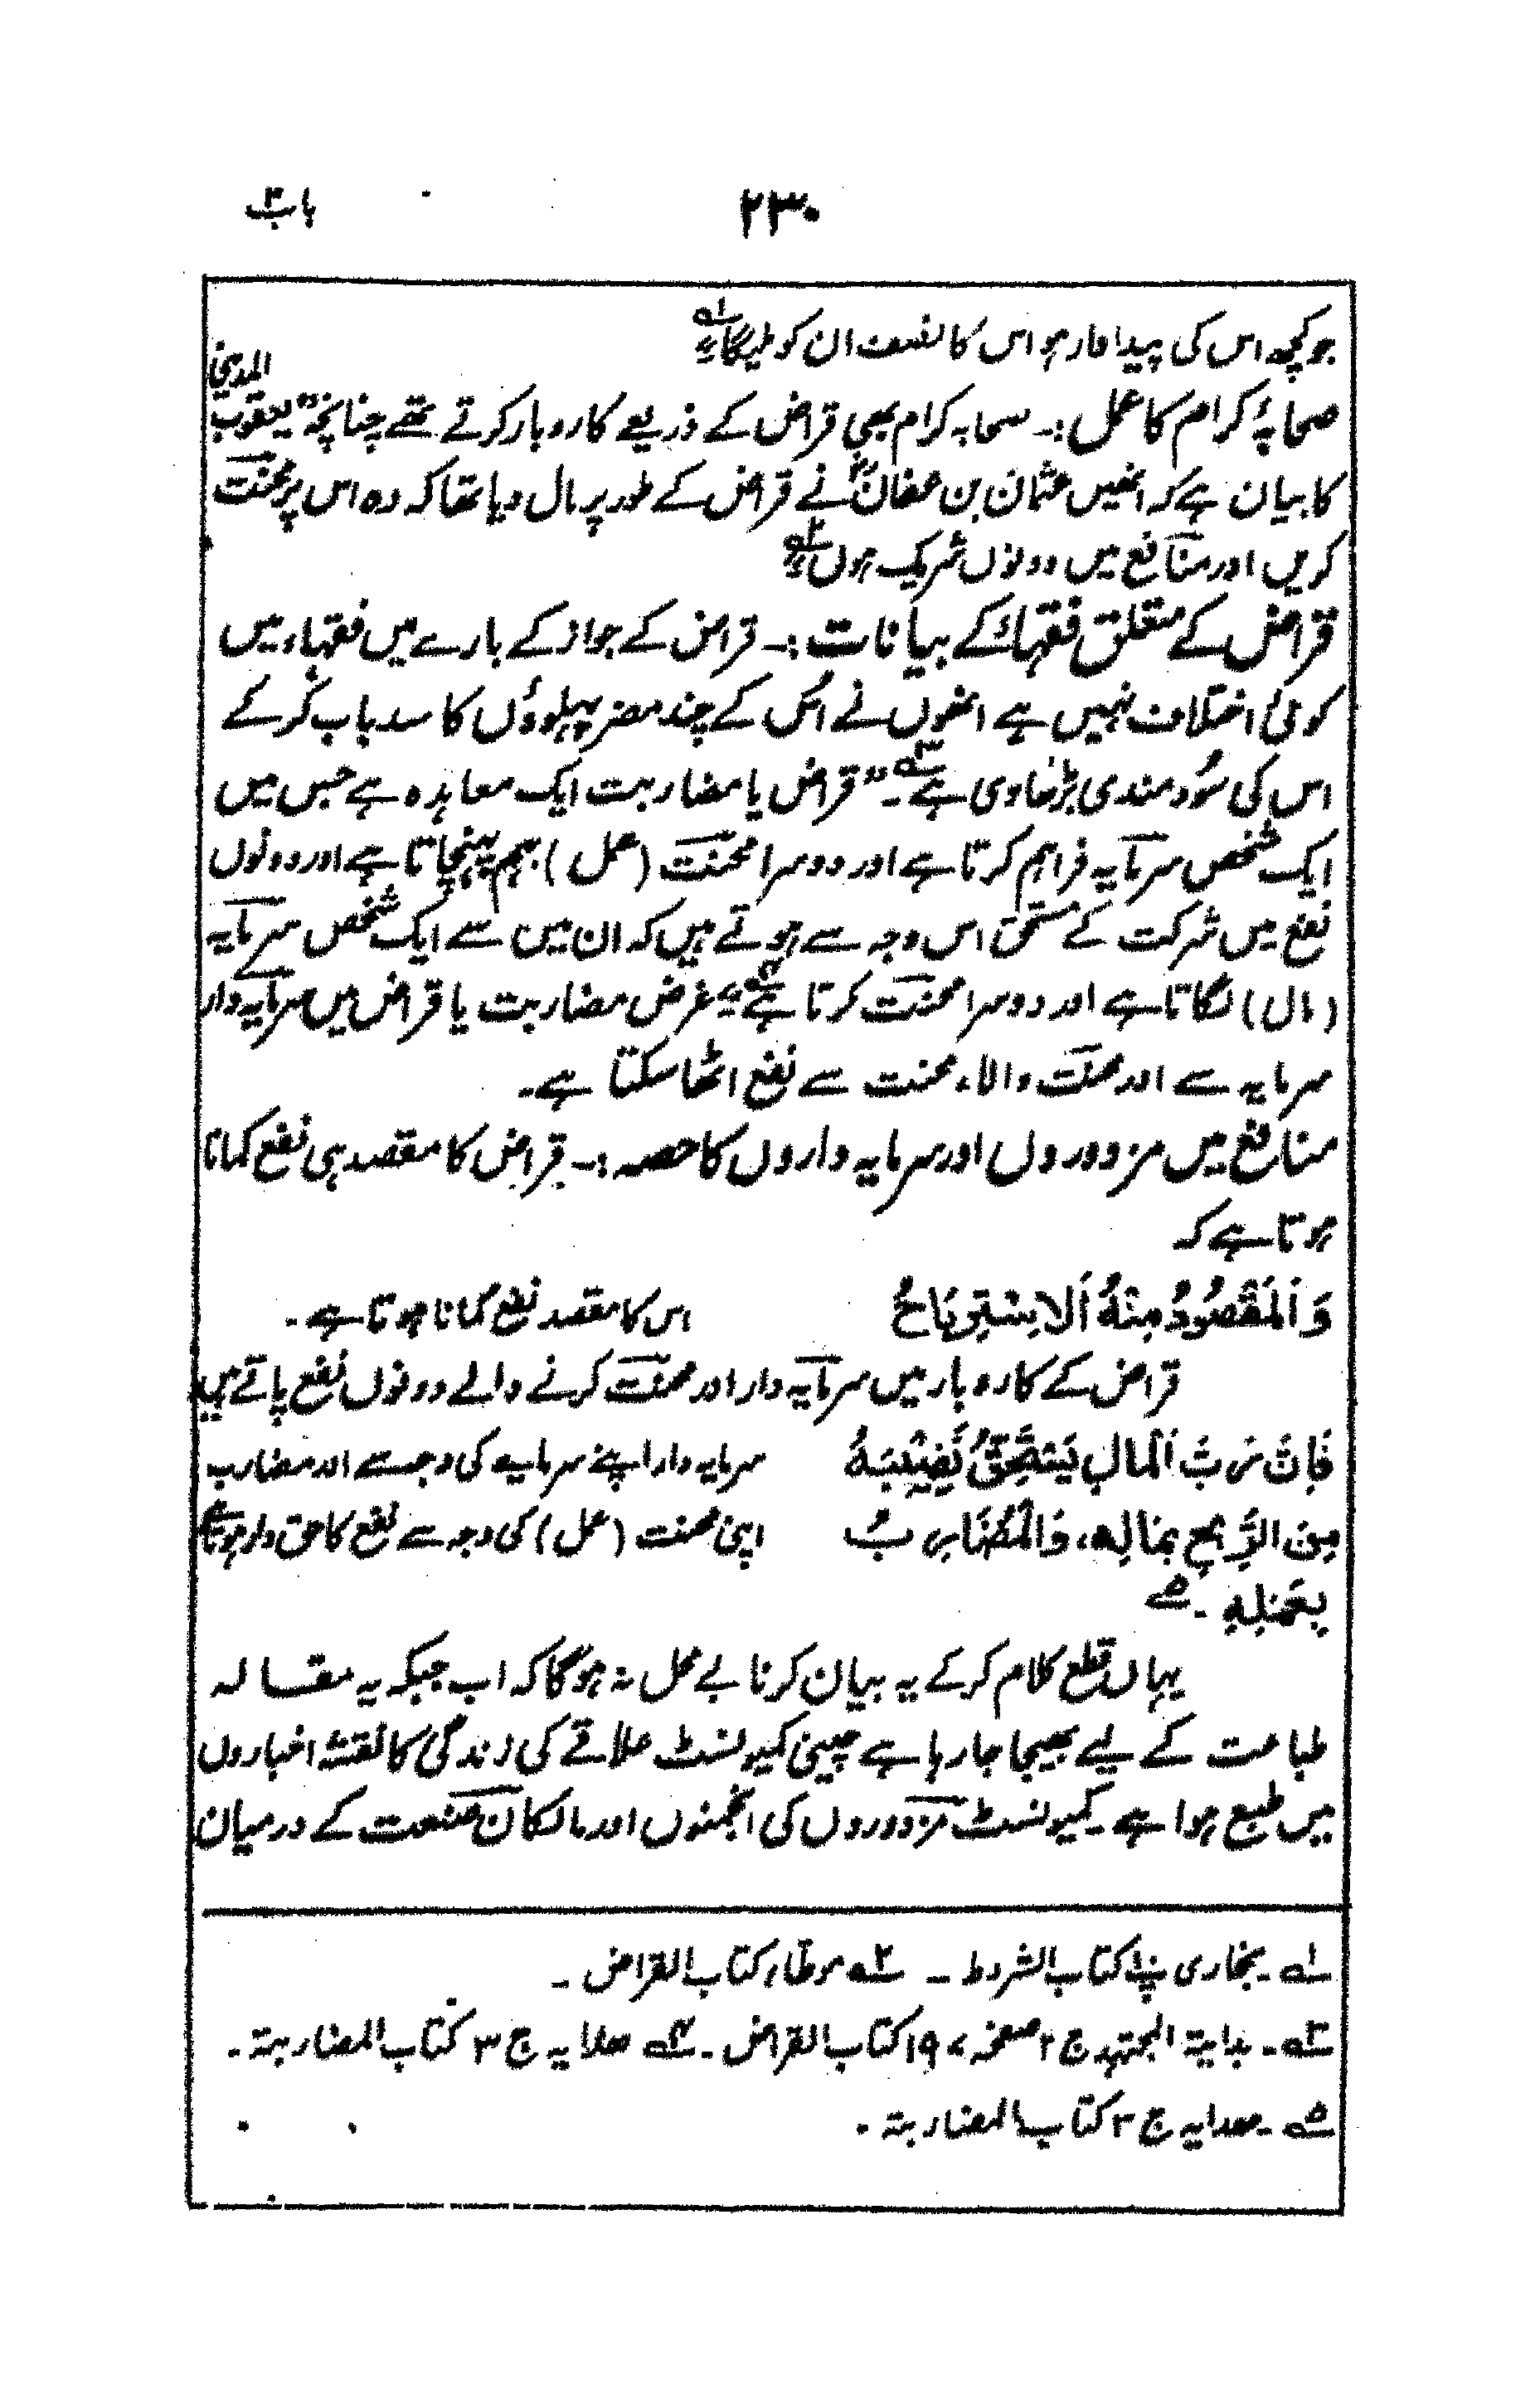 ۲۳۰
باب ۳
جو کچھ اس کی پیداوار ہو اس کا نصف ان کو ملیگا۔ؑ۱
صحابۂ کرام کا عمل :۔ صحابہ کرام بھی قراض کے ذریعے کاروبار کرتے تھے چنانچہ "یعقوب المدنی
کا بیان ہے کہ انھیں عثمان بن عفانؓ نے قراض کے طور پر مال دیا تھا کہ وہ اس پر محنت
کریں اور منافع میں دونوں شریک ہوں"۔۲
قراض کے متعلق فقہا کے بیانات :۔ قراض کے جواز کے بارے میں فقہاء میں
کوئی اختلاف نہیں ہے انھوں نے اُس کے چند مضر پہلوؤں کا سدباب کر کے
اس کی سُود مندی بڑھادی ہے۔۳ "قراض یا مضاربت ایک معاہدہ ہے جس میں
ایک شخص سرمایہ فراہم کرتا ہے اور دوسرا محنت (عمل) بہم پہنچاتا ہے اور دونوں
نفع میں شرکت کے مستحق اس وجہ سے ہوتے ہیں کہ ان میں سے ایک شخص سرمایہ
(مال) لگاتا ہے اور دوسرا محنت کرتا ہے"۴ غرض مضاربت یا قراض میں سرمایہ دار
سرمایہ سے اور محنت والا، محنت سے نفع اٹھا سکتا ہے۔
منافع میں مزدوروں اور سرمایہ داروں کا حصہ :۔ قراض کا مقصد ہی نفع کمانا
ہوتا ہے کہ
وَالمَقْصُودُ مِنْهُ اَلاِسْتِرِبَاحُ اس کا مقصد نفع کمانا ہوتا ہے۔
قراض کے کاروبار میں سرمایہ دار اور محنت کرنے والے دونوں نفع پاتے ہیں
فَاِنَّ رَبَّ اَلْمَالِ یَسْتَحِقُّ نَصِیْبَہٗ سرمایہ دار اپنے سرمایے کی وجہ سے اور مضارب
مِنَ الرِّبْحِ بِمَالِهٖ، وَالْمُضَارِبُ اپنی محنت (عمل) کی وجہ سے نفع کا حق دار ہوتا ہے
بِعَمَلِهٖ ۔۵
یہاں قطع کلام کر کے یہ بیان کرنا بے محل نہ ہوگا کہ اب جبکہ یہ مقالہ
طباعت کے لیے بھیجا جا رہا ہے چینی کمیونسٹ علاقے کی زندگی کا نقشہ اخباروں
میں طبع ہوا ہے۔ کمیونسٹ مزدوروں کی انجمنوں اور مالکان صنعت کے درمیان
۱۔ بخاری کتاب الشروط ۔ ۲ موطاء کتاب القراض ۔
۳۔ بدایۃ المجتہد ج ۲ صفحہ ۱۹۷ کتاب القراض ۔ ۴ ھدایہ ج ۳ کتاب المضاربتہ ۔
۵۔ ھدایہ ج ۳ کتاب المضاربتہ ۔